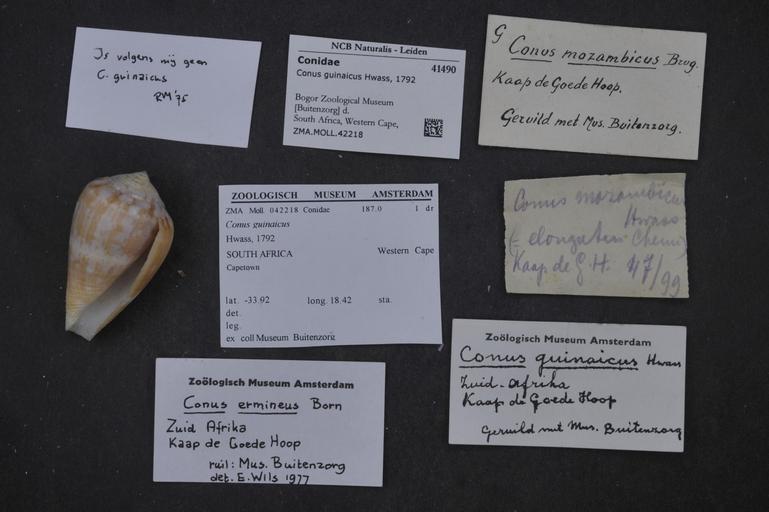 Is volgens mij geen
C. guinaicus
RM '75
NCB Naturalis - Leiden
Conidae 41490
Conus guinaicus Hwass, 1792
Bogor Zoological Museum
[Buitenzorg] d.
South Africa, Western Cape,
ZMA.MOLL.42218
G Conus mozambicus Brug.
Kaap de Goede Hoop.
Geruild met Mus. Buitenzorg.
ZOOLOGISCH MUSEUM AMSTERDAM
ZMA Moll. 042218 Conidae 187.0 1 dr
Conus guinaicus
Hwass, 1792
SOUTH AFRICA Western Cape
Capetown
lat. -33.92 long. 18.42 sta.
det.
leg.
ex coll Museum Buitenzorg
Conus mozambicus
Hwass
(= elongatus Chemn)
Kaap de G. H. 47/99
Zoölogisch Museum Amsterdam
Conus ermineus Born
Zuid Afrika
Kaap de Goede Hoop
ruil: Mus. Buitenzorg
det. E. Wils 1977
Zoölogisch Museum Amsterdam
Conus guinaicus Hwass
Zuid-Afrika
Kaap de Goede Hoop
Geruild met Mus. Buitenzorg